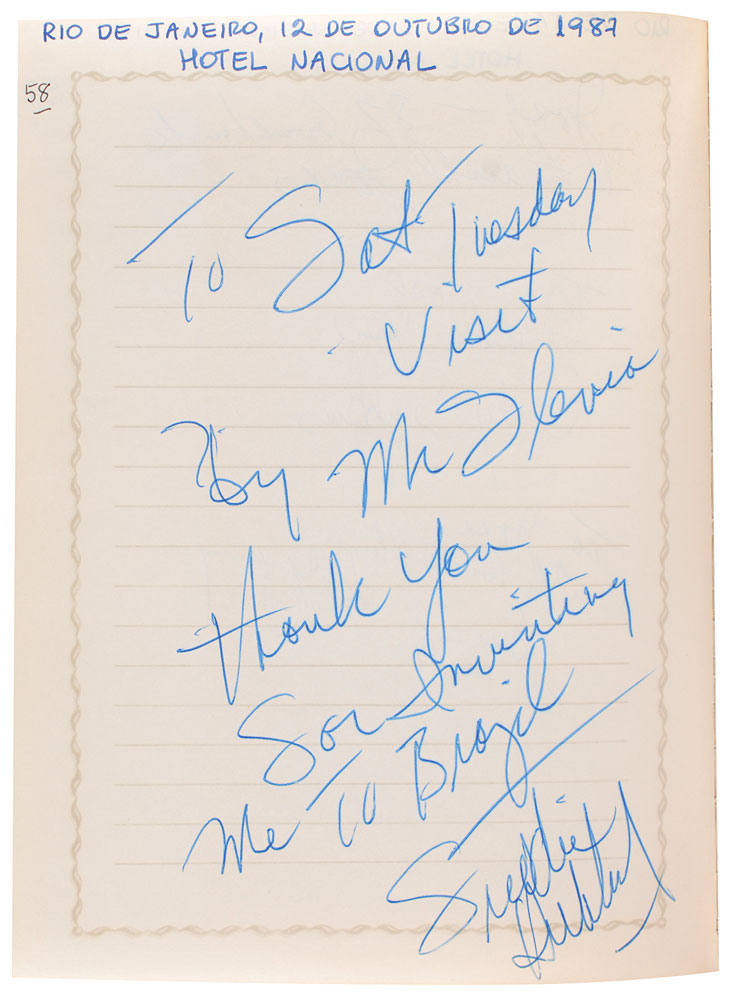 RIO DE JANEIRO, 12 DE OUTUBRO DE 1987
HOTEL NACIONAL
58
To Fat Tuesday
Visit
By Mr
Thank You
For Inviting
Me To Brazil
Freddie
Hubbard